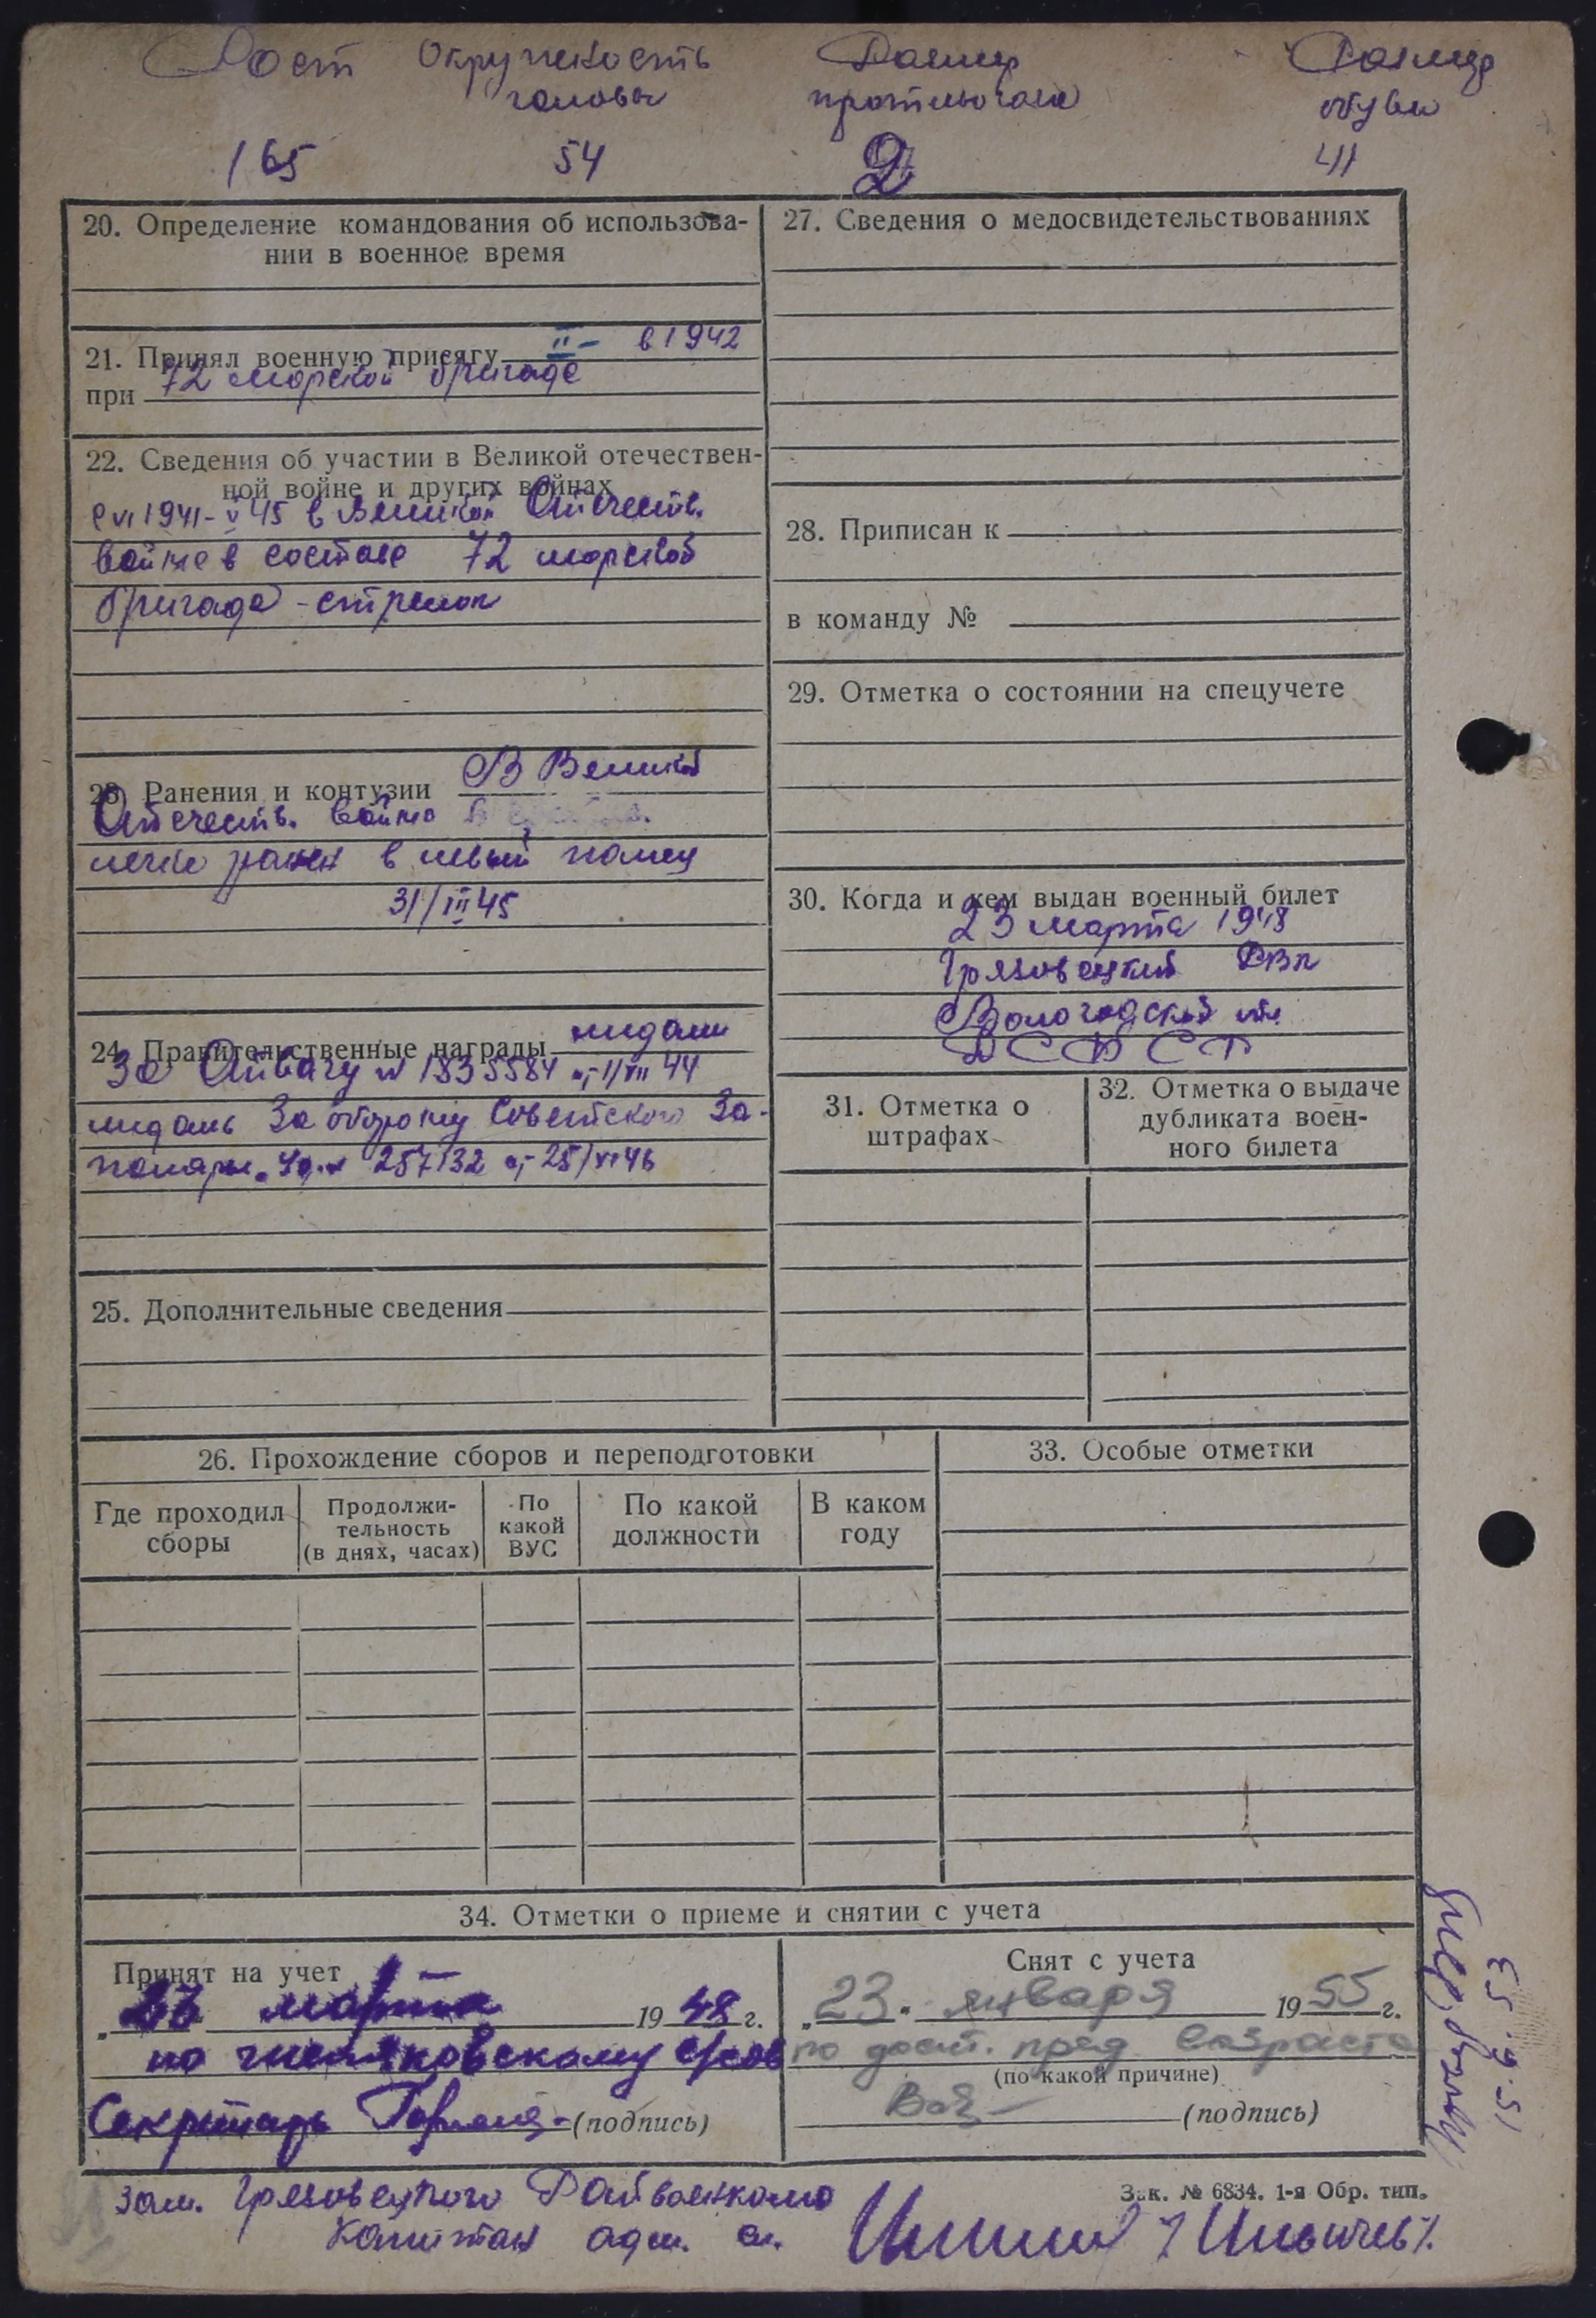 Рост Окружность Размер Размер
головы противогаза обуви
165 54 2 41
20. Определение командования об использова-
нии в военное время
21. Принял военную присягу II - в 1942
при 72 морской бригаде
22. Сведения об участии в Великой отечествен-
ной войне и других войнах
с VI 1941 - V 45 в Великой Отечеств.
войне в составе 72 морской
бригаде - стрелок
23. Ранения и контузии В Великой
Отечеств. войне
легко ранен в левый палец
31/III 45
24. Правительственные награды медали
За Отвагу № 1835584 от 1/VII 44
медаль За оборону Советского За-
поляры. Уд. № 257132 от 25/VI 46
25. Дополнительные сведения
26. Прохождение сборов и переподготовки
Где проходил сборы
Продолжи-
тельность
(в днях, часах)
По
какой
ВУС
По какой
должности
В каком
году
27. Сведения о медосвидетельствованиях
28. Приписан к
в команду №
29. Отметка о состоянии на спецучете
30. Когда и кем выдан военный билет
23 марта 1948
Грязовецкий РВК
Вологодской обл.
РСФСР
31. Отметка о
штрафах
32. Отметка о выдаче
дубликата воен-
ного билета
33. Особые отметки
34. Отметки о приеме и снятии с учета
Принят на учет
„23 марта 1948 г.
по с/сов
Секретарь (подпись)
Снят с учета
„23" января 1955 г.
по дост. пред. возраста
(по какой причине)
(подпись)
Зам. Грязовецкого Райвоенкома
Капитан адм. сл. /Ильичев/.
Зак. № 6834. 1-я Обр. тип.
15.9.53